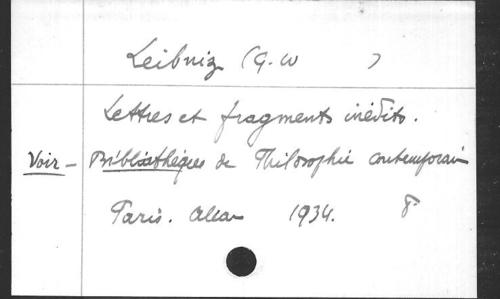 Leibniz (G. W )
Lettres et fragments inédits.
Voir - Bibliothèque de Philosophie contemporain
Paris. Alcan 1934. 8°